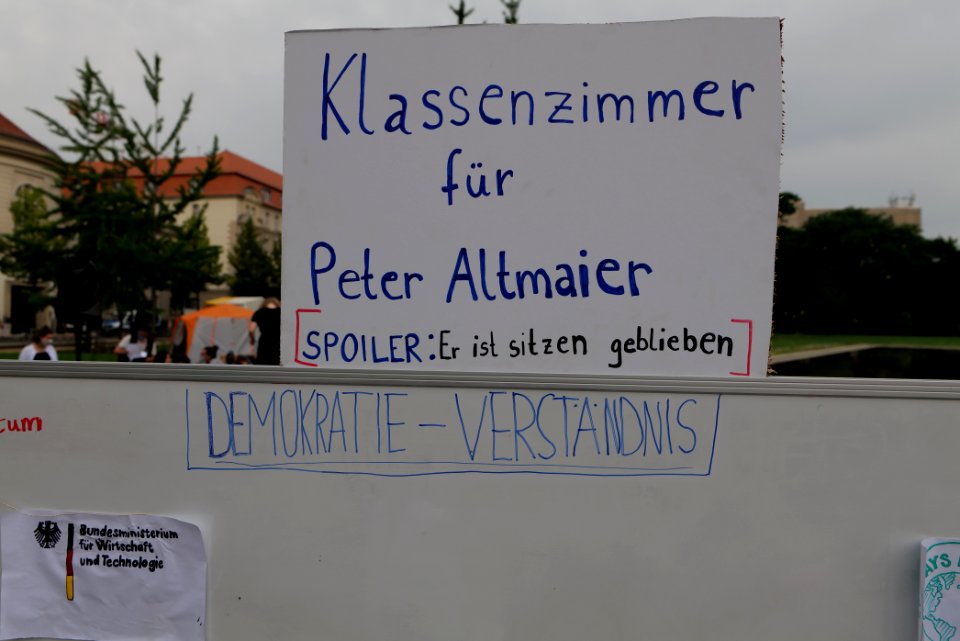 Klassenzimmer
für
Peter Altmaier
[SPOILER: Er ist sitzen geblieben]
DEMOKRATIE – VERSTÄNDNIS
Bundesministerium
für Wirtschaft
und Technologie